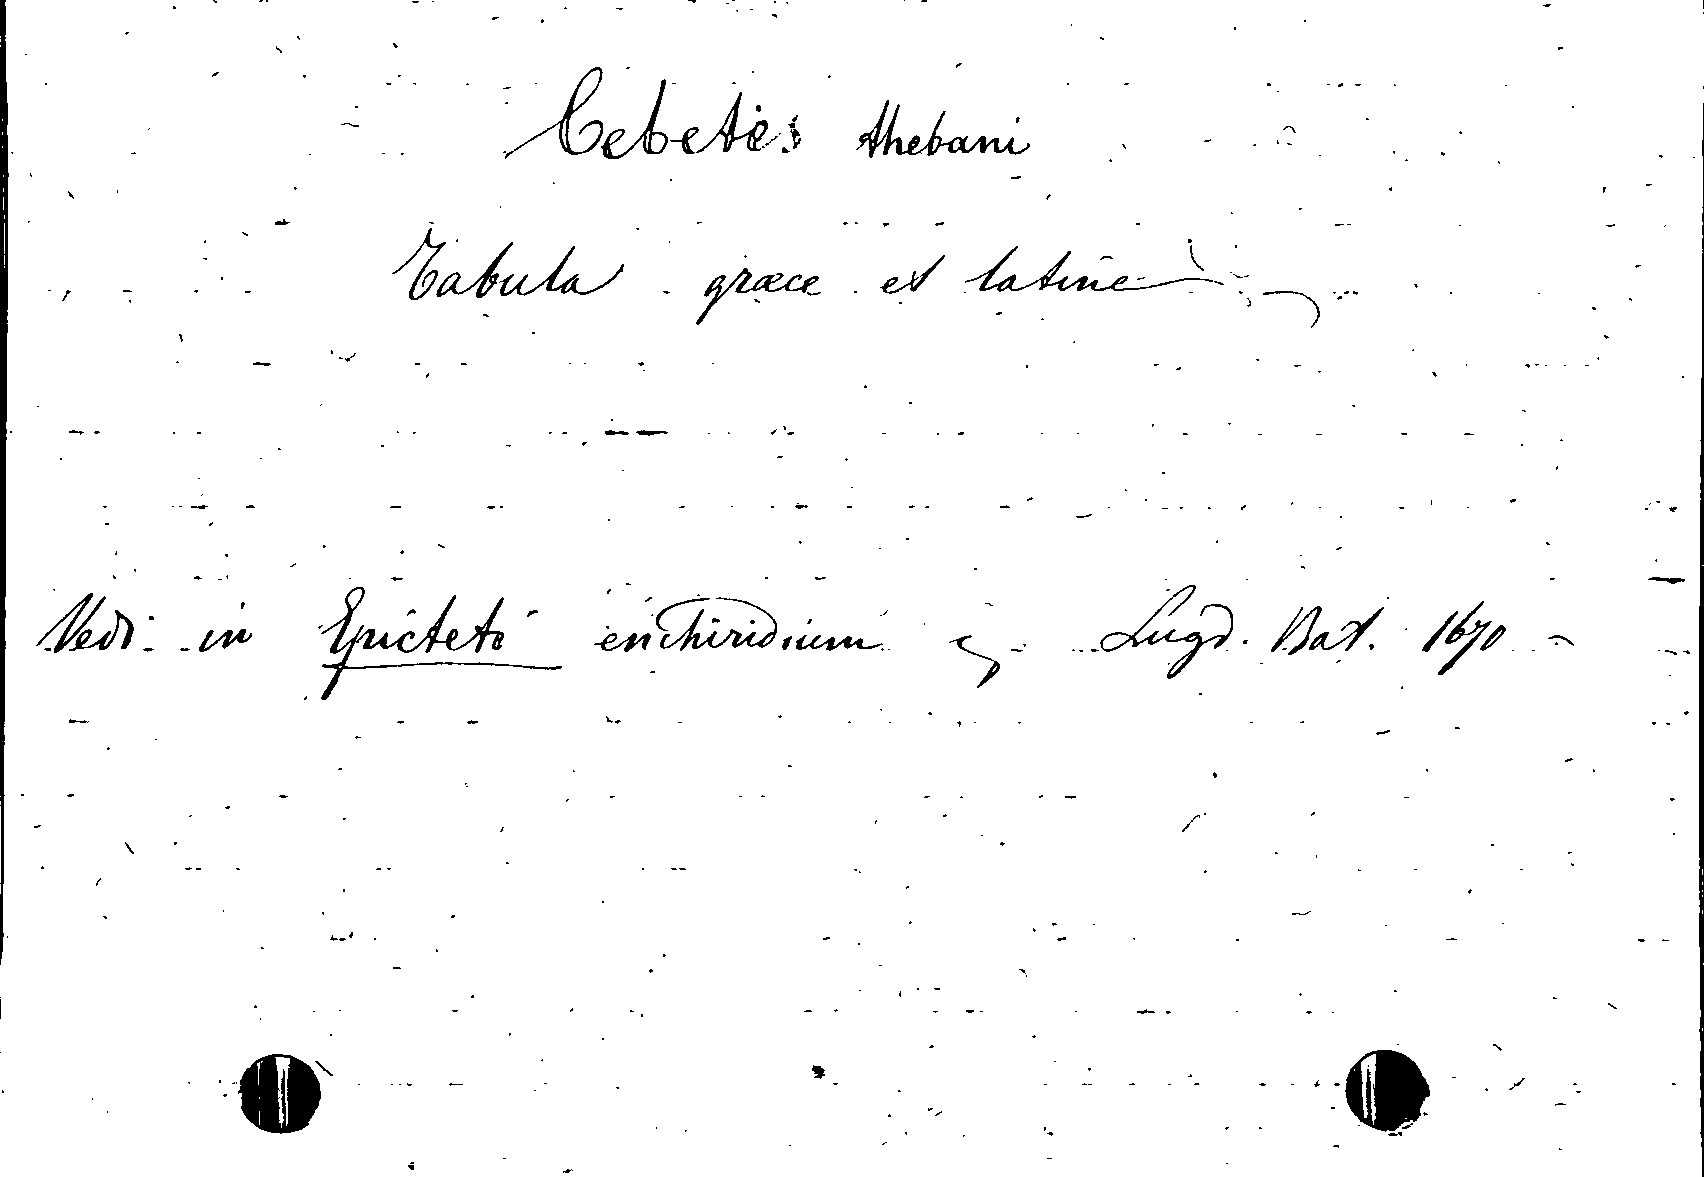 Cebetis thebani
Tabula graece et latine
Vedi in Epicteti enchiridium Lugd. Bat. 1670